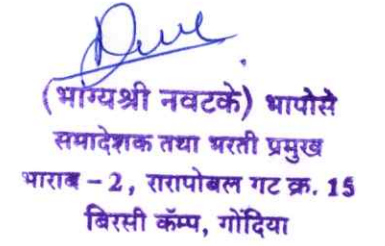 (भाग्यश्री नवटके) भापोसे
समादेशक तथा भरती प्रमुख
भाराब - 2, रारापोबल गट क्र. 15
बिरसी कॅम्प, गोंदिया